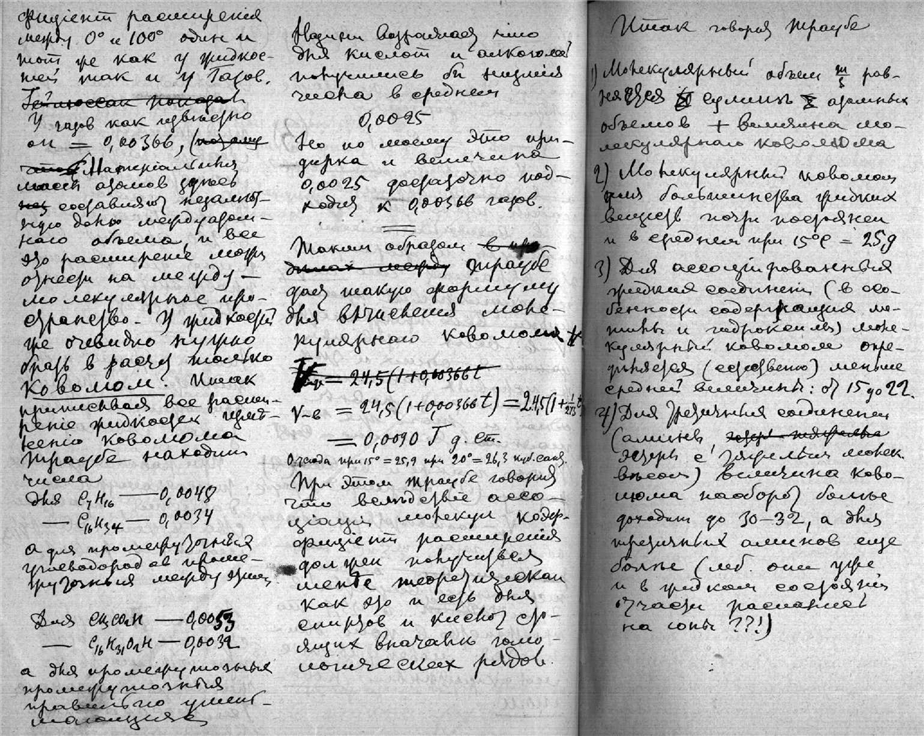 фициент расширенія
между 0° и 100° один и
тот же как у жидкос-
тей так и у газов.
Гейлюссак показал
У газов как известно
он = 0,00366,
Материальная
масса атомов здесь
составляет незамет-
ную долю междуатом-
наго объема, и все
это расширение можно
отнести на между-
молекулярное про-
странство. У жидкостей
же очевидно нужно
брать в расчет только
Коволюм. Итак
приписывая все расши-
ренiе жидкостей
коволюма
Траубе находит
числа
для C₇H₁₆ — 0,0045
— C₁₆H₃₄ — 0,0034
а для промежуточных
углеводородов проме-
жуточныя между этими
Для — 0,0053
— C₁₆H₃₁O₂H — 0,0032
а для промежуточных
промежуточныя
правильно умень-
шающияся
Надичи возражает что
для кислот и алкоголей
получились бы низшiя
числа в среднем
0,0025
Но по моему это при-
дирка и величина
0,0025 достаточно под-
ходит к 0,00366 газов.
Таким образом Траубе
дает такую формулу
для вычисления моле-
кулярнаго коволюма
= 24,5(1+0,00366t
V-в = 24,5(1+0,00366t) = 24,5(1+1/273 t)
= 0,0090 T д. ст.
Отсюда при 15° = 25,9 при 20° = 26,3 куб. сант.
При этом Траубе говорит
что вследствие ассо-
циации молекул коэф-
фициент расширения
должен получиться
менее теоретическаго
как это и есть для
спиртов и кислот сто-
ящих вначале гомо-
логических рядов.
Итак говорит Траубе
1) Молекулярный объем m/s рав-
няется сумме Σ атомных
объемов + величина мо-
лекулярнаго коволюма
2) Молекулярный коволюм
для большинства жидких
веществ почти постоянен
и в среднем при 15°C = 25,9
3) Для ассоциированных
жидких соединений (в осо-
бенности содержащих
и гидроксилы) моле-
кулярный коволюм опре-
деляется (естественно) меньше
средней величины: от 15 до 22.
4) Для третичных соединений
(аминов
эфиры с тяжелым молек.
весом) величина ково-
люма наоборот больше
доходит до 30-32, а для
третичных аминов еще
больше (м.б. они уже
и в жидком состоянии
отчасти распались
на ионы ??!)